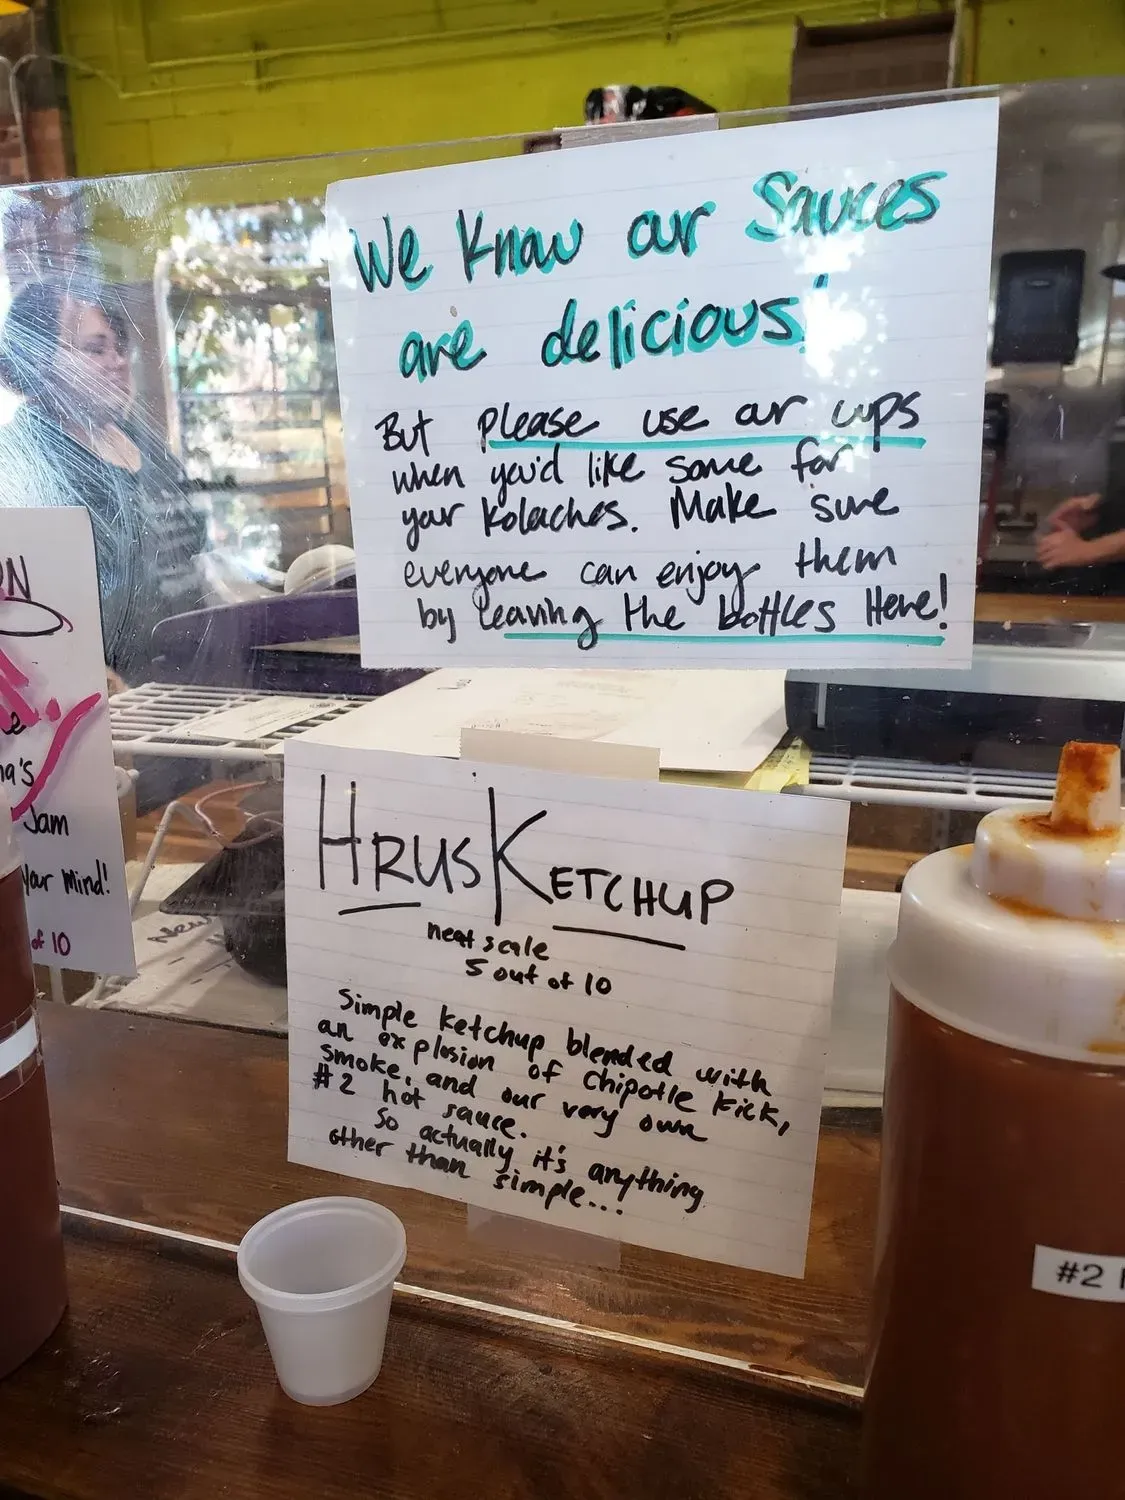 We Know our Sauces
are delicious!
But please use our cups
when you'd like some for
your kolaches. Make sure
everyone can enjoy them
by leaving the bottles Here!
HRUSKETCHUP
heat scale
5 out of 10
Simple ketchup blended with
an explosion of chipotle kick,
smoke, and our very own
#2 hot sauce.
So actually it's anything
other than simple...
Jam
Your Mind!
of 10
#2